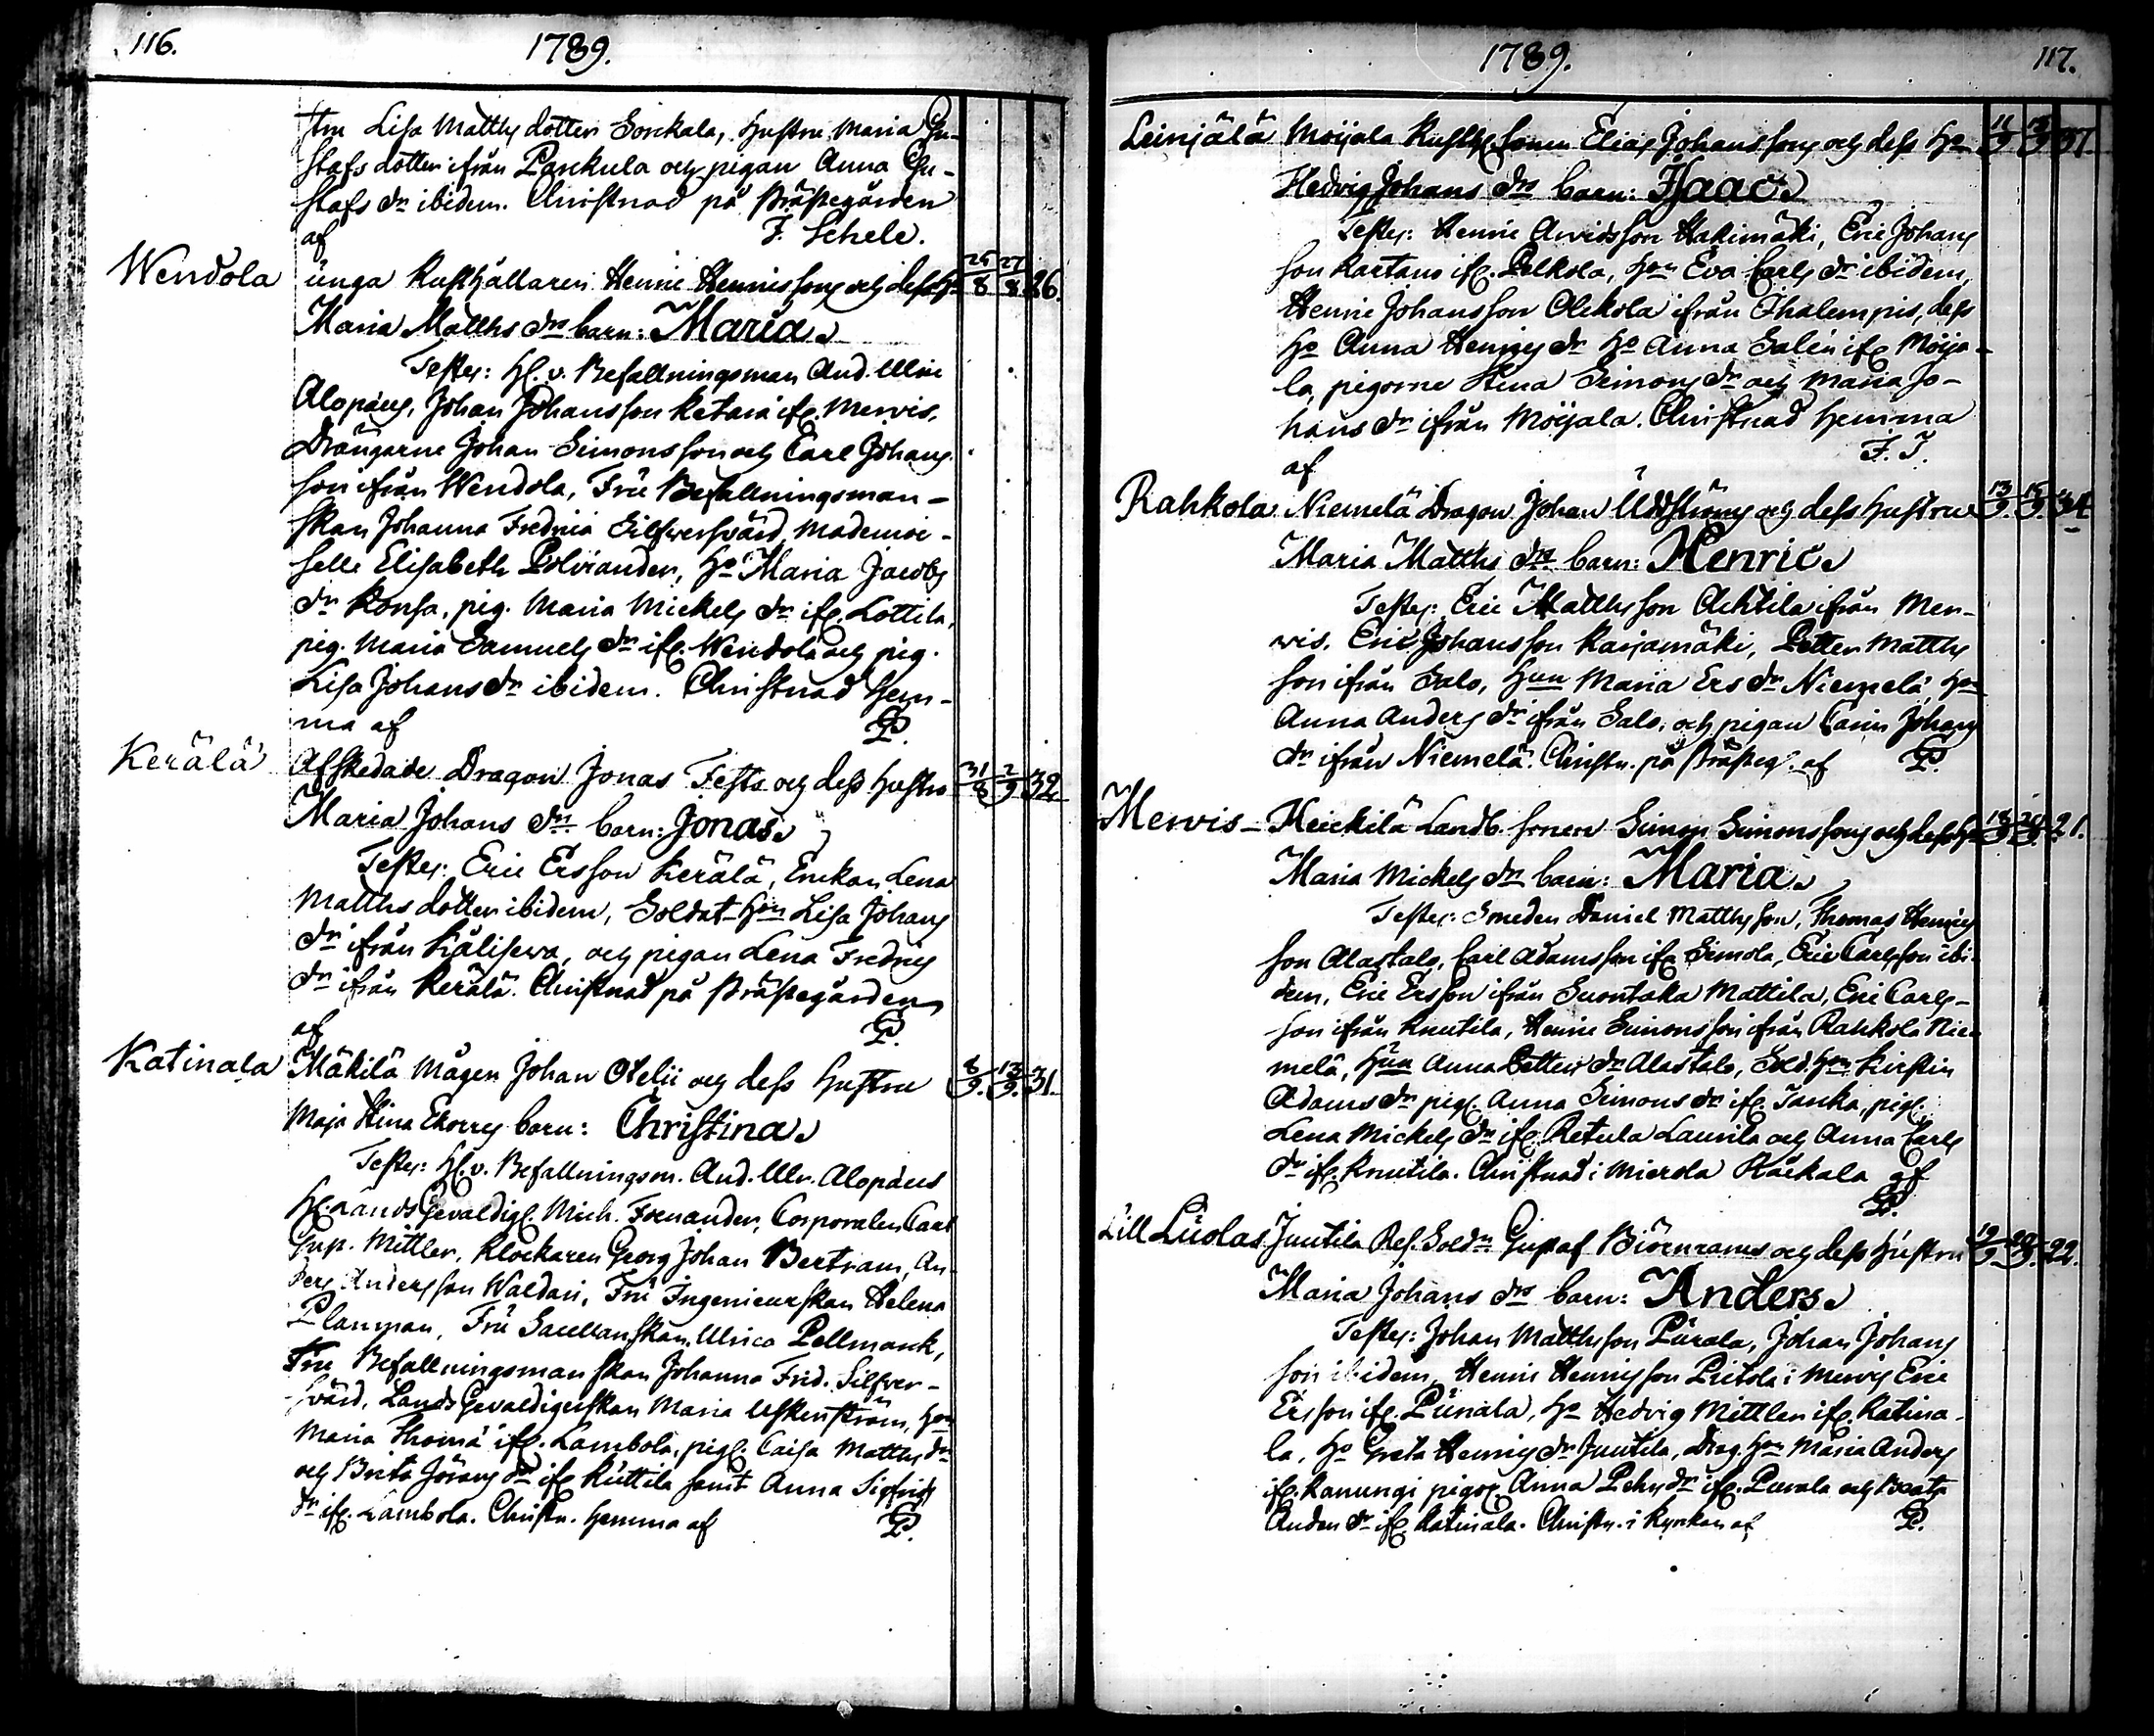 116.
1789.
stru Lisa Matths dotter Sorckala, hustru Maria Gu-
stafs dotter ifrån Parckula och pigan Anna Gu-
stafs dr ibidem. Christnad på Prästegården
af F. Schele.
Wendola unga Rusthållaren Henric Henricssons och dess Ho 25/8 27/8 26.
Maria Matths dr barn: Maria.
Testes: Hl. v. Befallningsman And. Ulric
Alopæus, Johan Johansson Retari ifr. Mervis,
Drängarne Johan Simonsson och Carl Johans
son ifrån Wendola, Fru Befallningsman-
skan Johanna Fredrica Silfversvärd, Mademoi-
selle Elisabeth Polviander, Ho Maria Jacobs
dr Konsa, pig. Maria Mickels dr ifr. Lottila,
pig. Maria Samuels dr ifr. Wendola och pig.
Lisa Johans dr ibidem. Christnad hem-
ma af P.
Kerälä Afskedade Dragon Jonas Fests och dess hustru 31/8 2/9 32
Maria Johans dr barn: Jonas.
Testes: Eric Ersson Kerälä, Enckan Lena
Matths dotter ibidem, Soldat Hun Lisa Johans
dr ifrån Källsjerva, och pigan Lena Fredrics
dr ifrån Kerälä. Christnad på Prästegården
af P.
Katinala Mäkilä Mågen Johan Otelii och dess hustru 8/9. 13/9. 31.
Maja Stina Ekorrs barn: Christina.
Testes: Hl. v. Befallningsm. And. Ulr. Alopæus
Hl. Lands Gevaldig. Mich. Forsander, Corporalen Carl
Gust. Mittler, Klockaren Georg Johan Bertram, An-
ders Andersson Waldari, Fru Ingenieurskan Helena
Planman, Fru Sacellanskan Ulrica Pellmarck,
Fru Befallningsmanskan Johanna Frid. Silfver-
svärd, Lands Gevaldigerskan Maria Uskenström, Hun
Maria Thoma ifr. Lambola, pig. Caisa Matths dr
och Brita Jörans dr ifr. Kuttila samt Anna Sigfrids
dr ifr. Lambola. Christn. hemma af P.
1789.
117.
Leinjälä Moijala Rusth. sonen Elias Johanssons och dess Ho 11/9 13/9 37.
Hedvig Johans dr barn: Isaac.
Testes: Henric Arvidsson Hakimäki, Eric Johans
son Kartano ifr. Pelkola, Hun Eva Carls dr ibidem,
Henric Johansson Olckola ifrån Ihalempis, dess
Ho Anna Henrics dr Ho Anna Salén ifr. Moija-
la, pigorne Stina Simons dr och Maria Jo-
hans dr ifrån Moijala. Christnad hemma
af F. S.
Rahkola Niemelä Dragon Johan Uddströms och dess hustru 13/9. 15/9. 34
Maria Matths dr barn: Henric.
Testes: Eric Matthsson Achtila ifrån Mer-
vis. Eric Johansson Karjamäki, Petter Matths
son ifrån Salo, Hun Maria Ers dr Niemelä, Hun
Anna Anders dr ifrån Salo, och pigan Carin Johans
dr ifrån Niemelä. Christn. på Prästeg. af P.
Mervis- Heickilä Landb. sonen Simon Simonssons och dess Ho 18/9 20/9 21.
Maria Mickels dr barn: Maria.
Testes: Smeden Daniel Matthsson, Thomas Henrics
son Alastalo, Carl Adamsson ifr. Simola, Eric Carlsson ibi-
dem, Eric Ersson ifrån Suontaka Mattila, Eric Carls-
son ifrån Knutila, Henric Simonsson ifrån Rahkola Nie-
melä, Hun Anna Petters dr Alastalo, Sold. Hun Kirstin
Adams dr pig. Anna Simons dr ifr. Janka, pig.
Lena Mickels dr ifr. Retula Laurila och Anna Carls
dr ifr. Knutila. Christnad i Mierola Räckala af
P.
Lill Luolas Juutila Res. Soldn Gustaf Biörnrams och dess hustru 19/9 20/9 22.
Maria Johans dr barn: Anders.
Testes: Johan Matthsson Purala, Johan Johans
son ibidem, Henric Henricsson Pietola i Mervis Eric
Ersson ifr. Purala, Ho Hedvig Mittler ifr. Katina-
la, Ho Greta Henrics dr Juutila, Drag. Hun Maria Anders
ifr. Kanungi pigor Anna Pehrs dr ifr. Purala och Beata
Anders dr ifr. Katinala. Christn. i Kyrkan af P.